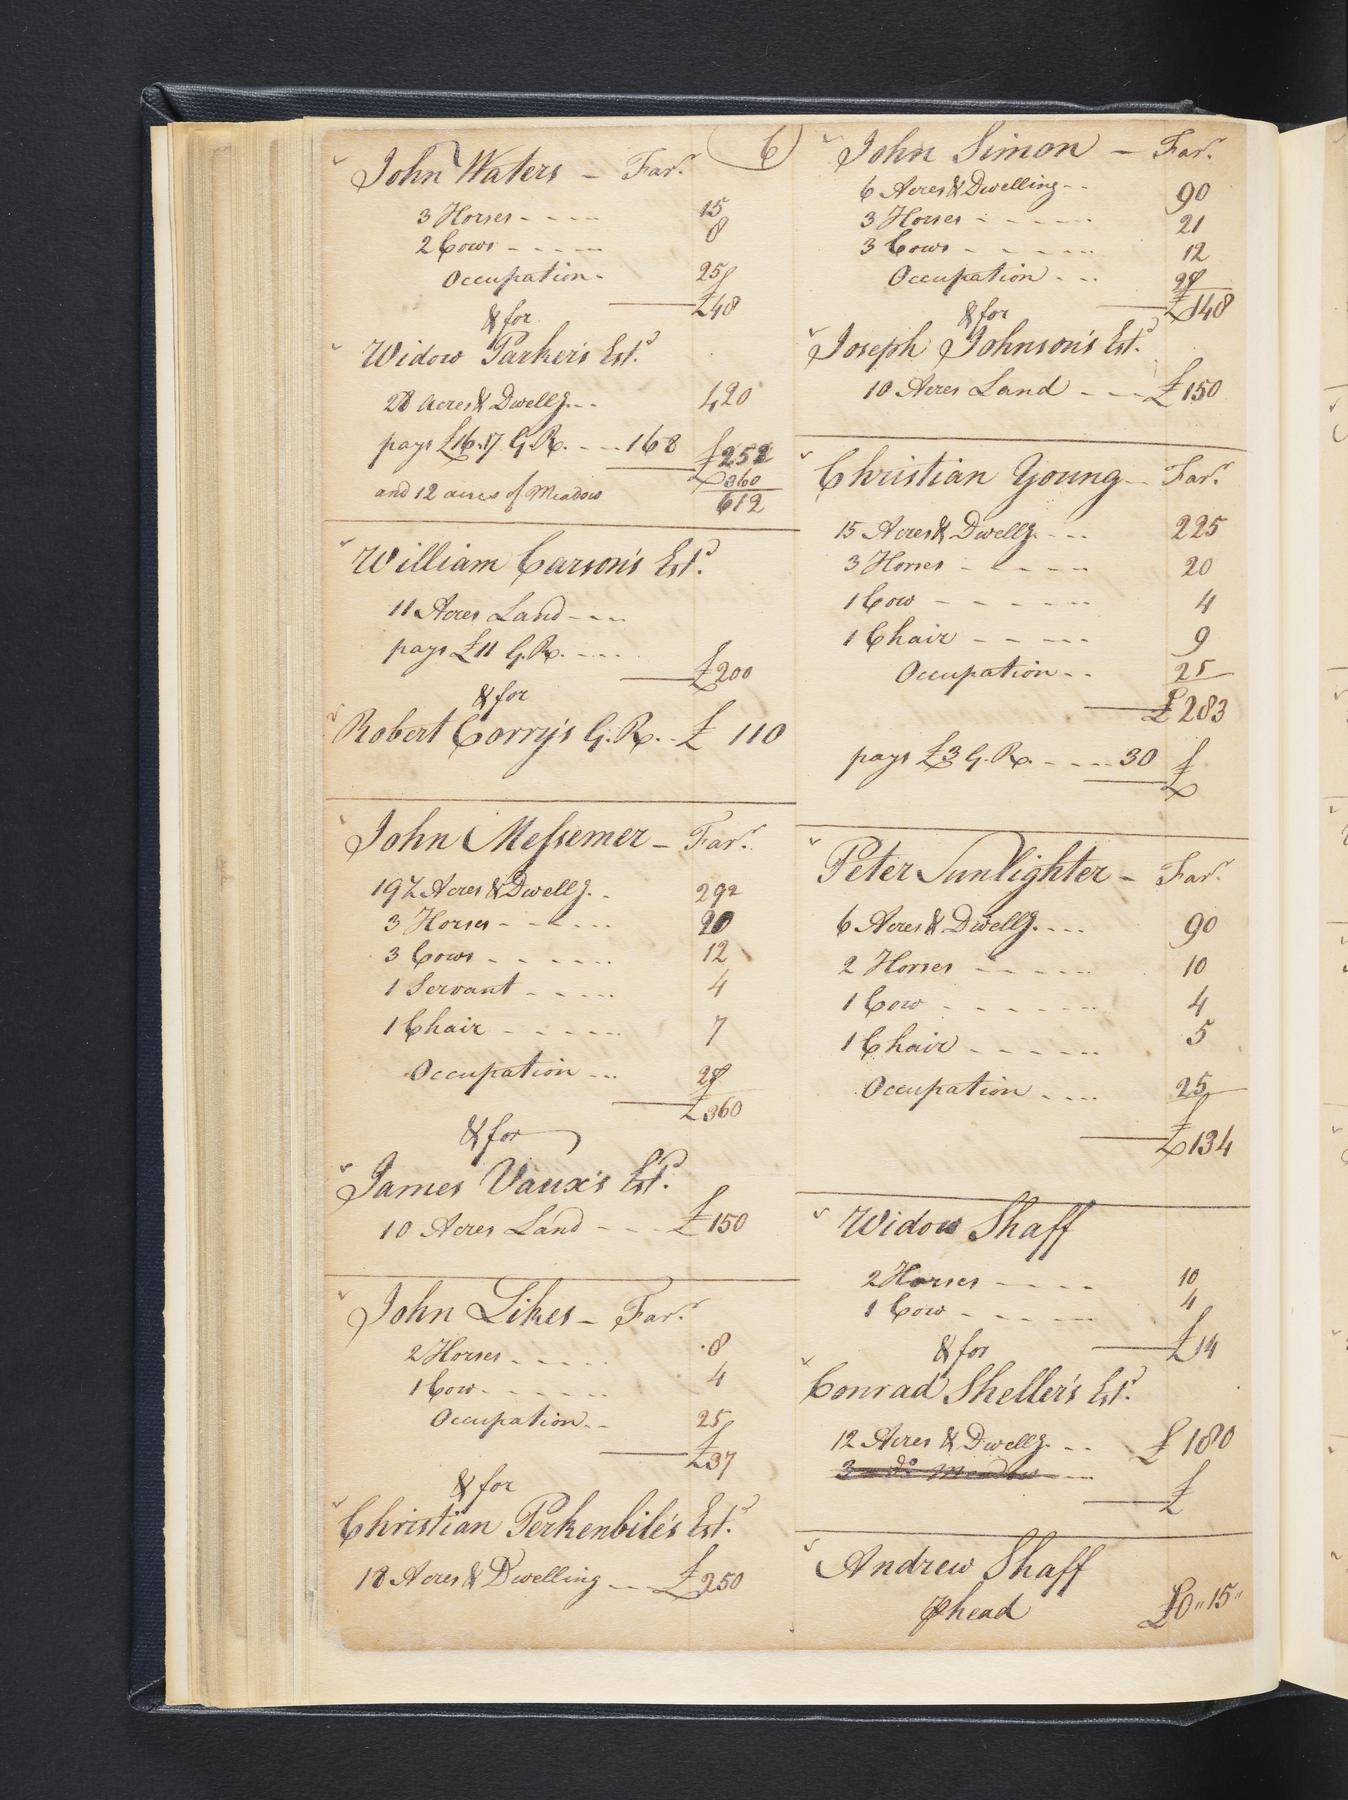 6
John Waters - Far.r
3 Horses - - - - 15
2 Cows - - - - - 8
Occupation - 25
£48
& for
Widow Parker's Est.d
28 Acres & Dwellg. - - 420
pays £16.17 G.R. - - - 168 £252
and 12 acres of Meadow £360
612
William Carson's Est.d
11 Acres Land - - -
pays £11 G.R. - - - -
£200
& for
Robert Corry's G.R. - £ 110
John Messemer - Far.r
19½ Acres & Dwellg. - 292
3 Horses - - - - - 20
3 Cows - - - - - - 12
1 Servant - - - - - 4
1 Chair - - - - - - 7
Occupation - - - 25
£360
& for
James Vaux's Est.d
10 Acres Land - - - £150
John Likes - Far.r
2 Horses - - - - - 8
1 Cow - - - - - - 4
Occupation - - 25
£37
& for
Christian Perkenbile's Est.d
18 Acres & Dwelling - - £250
John Simon - Far.r
6 Acres & Dwelling - - 90
3 Horses - - - - - 21
3 Cows - - - - - 12
Occupation - - - 25
£148
& for
Joseph Johnson's Est.d
10 Acres Land - - - £150
Christian Young - Far.r
15 Acres & Dwellg. - - - 225
3 Horses - - - - - 20
1 Cow - - - - - - 4
1 Chair - - - - - - 9
Occupation - - 25
£283
pays £3 G.R. - - - - 30 £
Peter Sunlighter - Far.r
6 Acres & Dwellg. - - - 90
2 Horses - - - - - 10
1 Cow - - - - - - 4
1 Chair - - - - - - 5
Occupation - - - - 25
£134
Widow Shaff
2 Horses - - - - - 10
1 Cow - - - - - - 4
& for £14
Conrad Sheller's Est.d
12 Acres & Dwellg. - - £180
3 do Meadow - - -
£
Andrew Shaff
⅌ head £0"15"